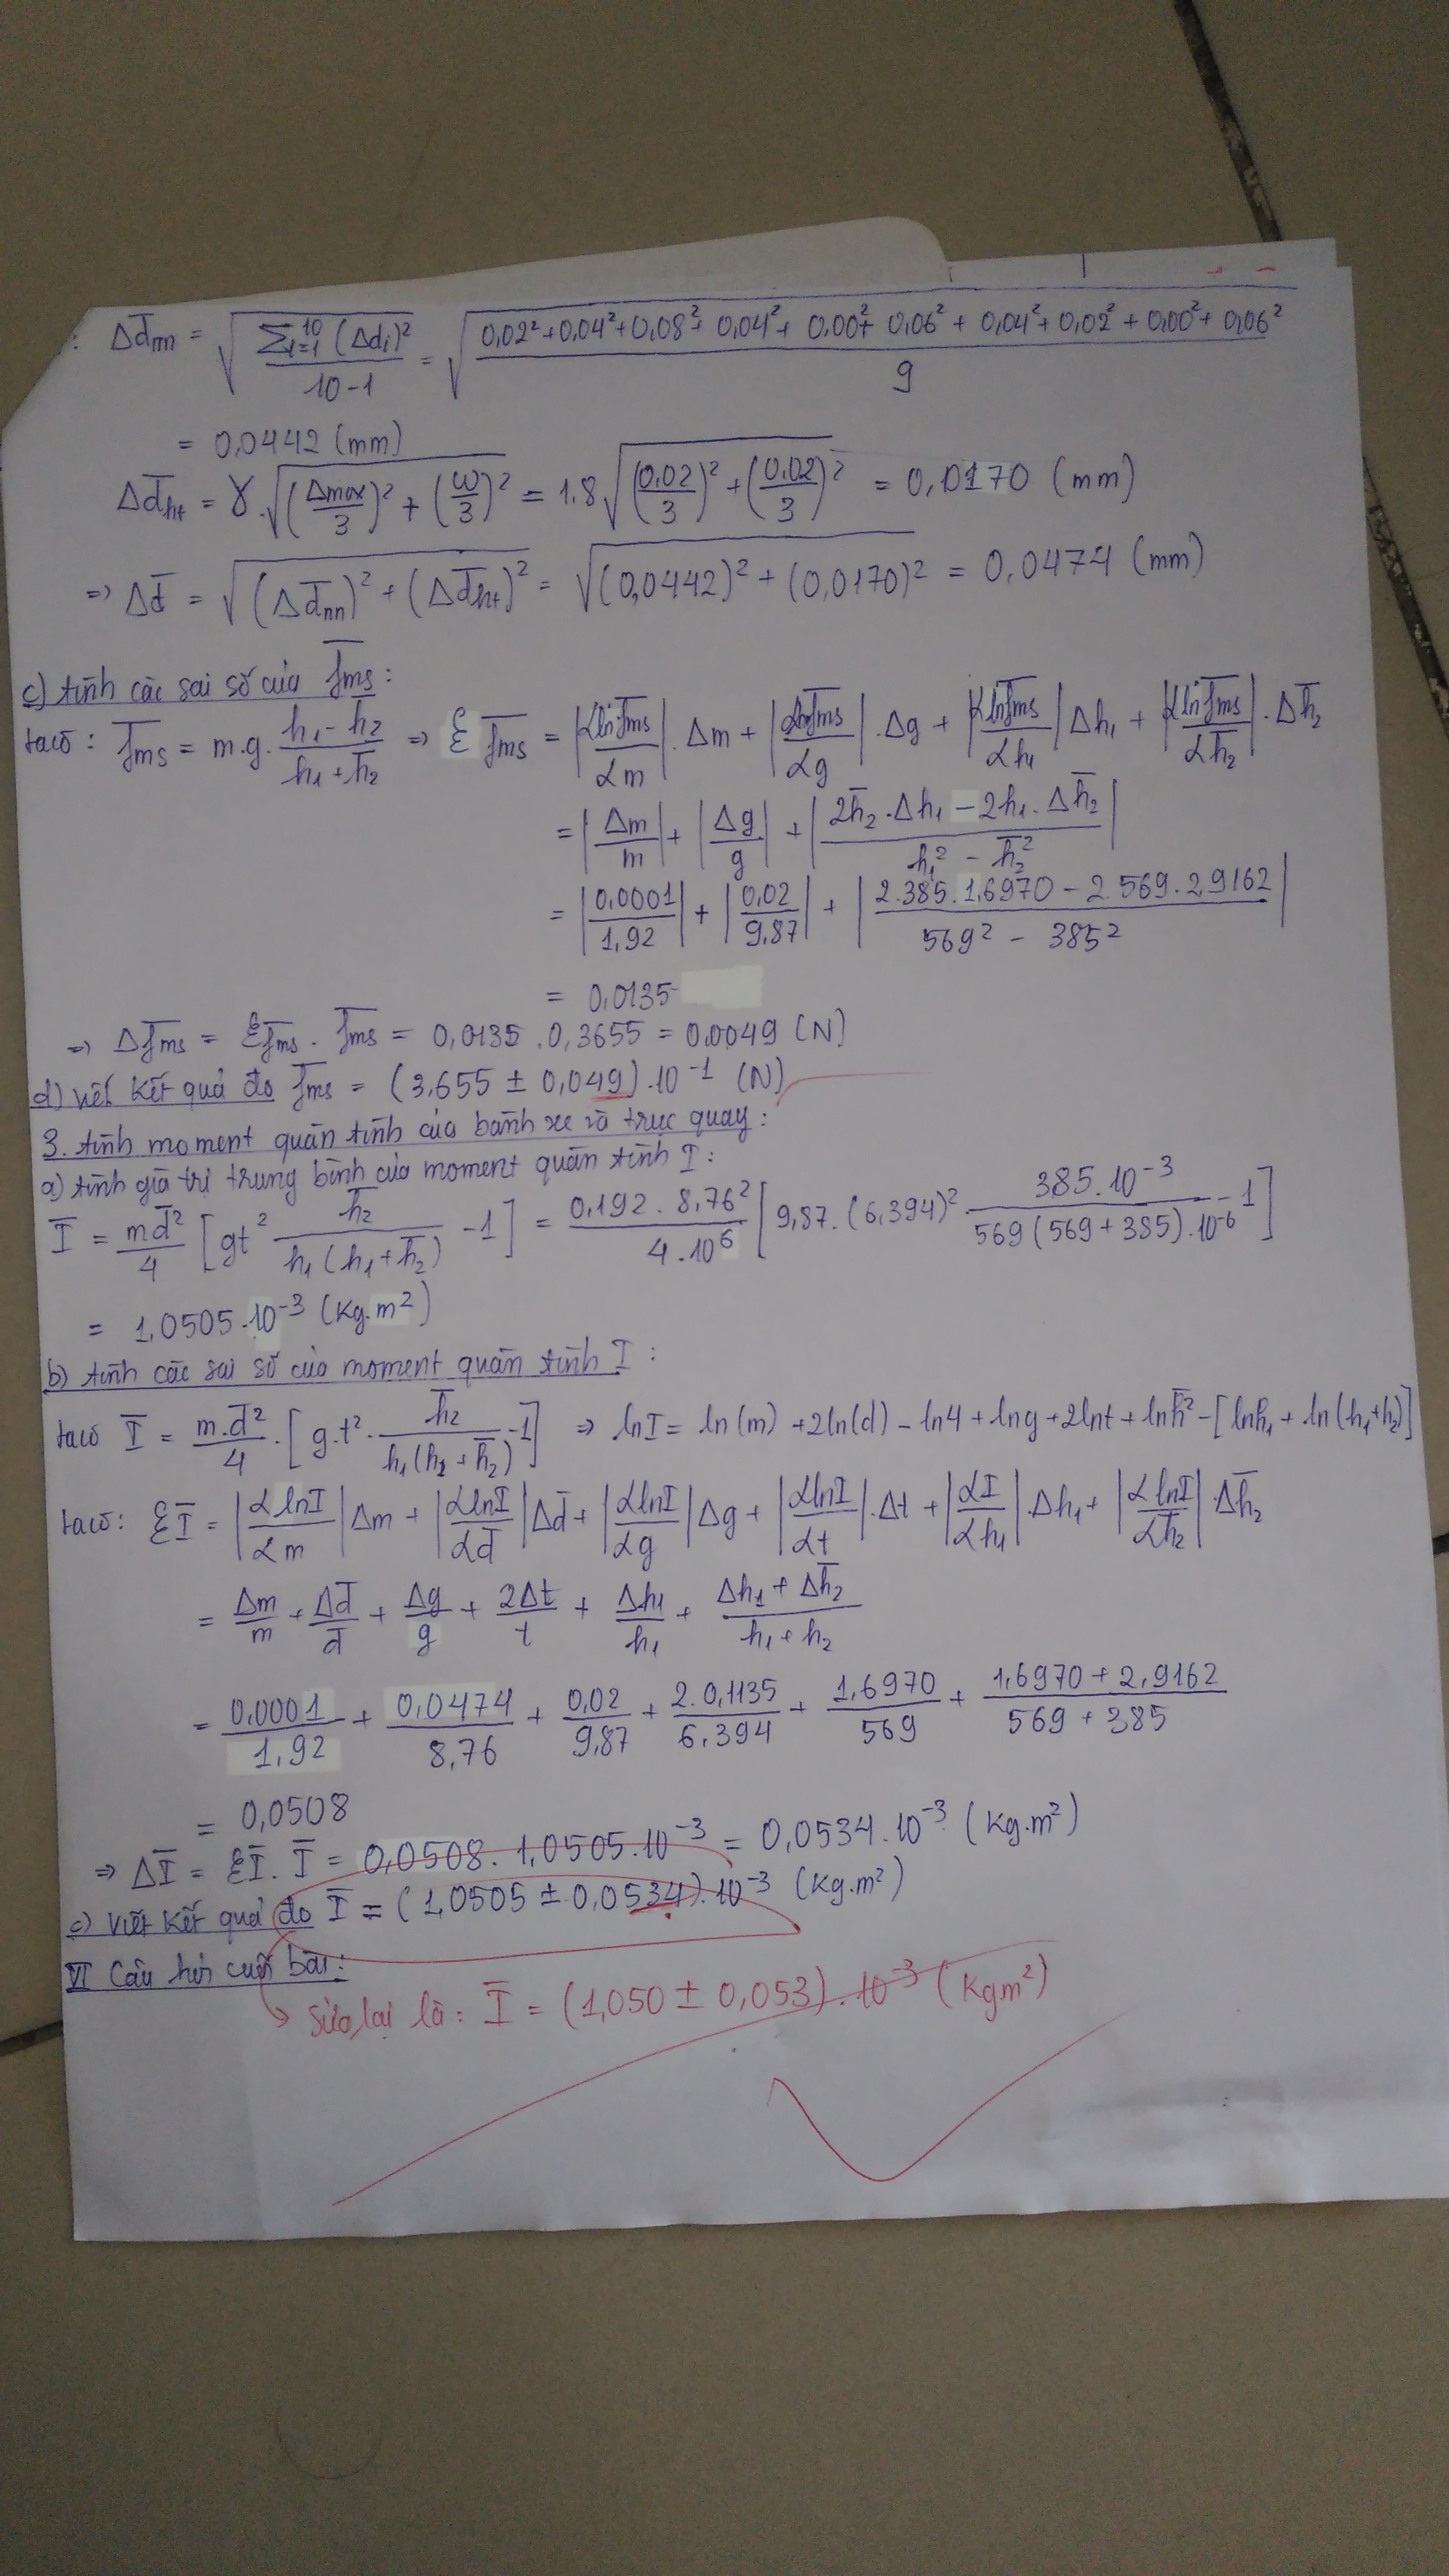 : Δd̄nn = √(Σ¹⁰ᵢ₌₁ (Δdᵢ)² / (10-1)) = √((0,02²+0,04²+0,08²+ 0,04²+ 0,00²+ 0,06² + 0,04²+ 0,02² + 0,00²+ 0,06²) / 9)
= 0,0442 (mm)
Δd̄ht = γ.√((Δmax/3)² + (ω/3)²) = 1.8 √((0.02/3)² + (0.02/3)²) = 0,0170 (mm)
=> Δd̄ = √((Δd̄nn)² + (Δd̄ht)²) = √((0,0442)² + (0,0170)²) = 0,0474 (mm)
c) tính các sai số của f̄ms :
ta có : f̄ms = m.g. (h₁ - h̄₂)/(h₁ + h̄₂) => Ɛ f̄ms = |∂lnf̄ms/∂m| . Δm + |∂lnf̄ms/∂g| .Δg + |∂lnf̄ms/∂h₁| Δh₁ + |∂lnf̄ms/∂h̄₂| . Δh̄₂
= |Δm/m| + |Δg/g| + |(2h̄₂ . Δh₁ - 2h₁ . Δh̄₂)/(h₁² - h̄₂²)|
= |0,0001/1,92| + |0,02/9,87| + |(2.385.1,6970 - 2.569.2,9162)/(569² - 385²)|
= 0,0135
=> Δf̄ms = Ɛf̄ms . f̄ms = 0,0135 . 0,3655 = 0,0049 (N)
d) viết kết quả đo f̄ms = (3,655 ± 0,049).10⁻¹ (N)
3. tính moment quán tính của bánh xe và trục quay :
a) tính giá trị trung bình của moment quán tính Ī :
Ī = md̄²/4 [gt² h̄₂/(h₁(h₁+h̄₂)) - 1] = (0,192 . 8,76²)/(4.10⁶) [9,87.(6,394)² 385.10⁻³/(569(569+385).10⁻⁶) - 1]
= 1,0505.10⁻³ (Kg.m²)
b) tính các sai số của moment quán tính Ī :
ta có Ī = m.d̄²/4 . [g.t² . h̄₂/(h₁(h₂ + h̄₂)) - 1] => lnI = ln(m) + 2ln(d) - ln4 + lng + 2lnt + lnh̄² - [lnh₁ + ln(h₁+h₂)]
ta có: ƐĪ = |∂lnI/∂m| Δm + |∂lnI/∂d̄| Δd̄ + |∂lnI/∂g| Δg + |∂lnI/∂t| .Δt + |∂I/∂h₁| .Δh₁ + |∂lnI/∂h̄₂| .Δh̄₂
= Δm/m + Δd̄/d̄ + Δg/g + 2Δt/t + Δh₁/h₁ + (Δh₁ + Δh̄₂)/(h₁ + h₂)
= 0,0001/1,92 + 0,0474/8,76 + 0,02/9,87 + 2.0,1135/6,394 + 1,6970/569 + (1,6970 + 2,9162)/(569 + 385)
= 0,0508
=> ΔĪ = ƐĪ . Ī = 0,0508. 1,0505.10⁻³ = 0,0534.10⁻³ (Kg.m²)
c) viết kết quả đo Ī = (1,0505 ± 0,0534).10⁻³ (Kg.m²)
VI Câu hỏi cuối bài:
↳ Sửa lại là : Ī = (1,050 ± 0,053).10⁻³ (Kgm²)